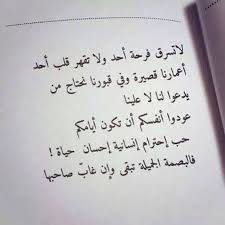 لاتسرق فرحة أحد ولا تقهر قلب أحد
أعمارنا قصيرة وفي قبورنا نحتاج من
يدعوا لنا لا علينا
عودوا أنفسكم أن تكون أيامكم
حب إحترام إنسانية إحسان حياة !
فالبصمة الجميلة تبقى وإن غاب صاحبها